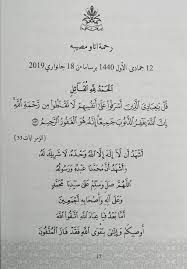 رحمة اتاو مصيبه
12 جمادى الأول 1440 برسامأن 18 جانواري 2019
الْحَمْدُ لِلَّهِ الْقَائِلِ
قُلْ يَٰعِبَادِيَ الَّذِينَ أَسْرَفُوا عَلَىٰ أَنفُسِهِمْ لَا تَقْنَطُوا مِن رَّحْمَةِ اللَّهِ
إِنَّ اللَّهَ يَغْفِرُ الذُّنُوبَ جَمِيعًا إِنَّهُ هُوَ الْغَفُورُ الرَّحِيمُ
(الزمر ايات 53)
أَشْهَدُ أَنْ لَا إِلَهَ إِلَّا اللَّهُ وَحْدَهُ لَا شَرِيكَ لَهُ
اللَّهُمَّ صَلِّ وَسَلِّمْ عَلَى سَيِّدِنَا مُحَمَّدٍ
وَعَلَى آلِهِ وَأَصْحَابِهِ أَجْمَعِينَ
أَمَّا بَعْدُ فَيَا عِبَادَ اللَّهِ اتَّقُوا اللَّهَ
أُوصِيكُمْ وَإِيَّايَ بِتَقْوَى اللَّهِ فَقَدْ فَازَ الْمُتَّقُونَ
17